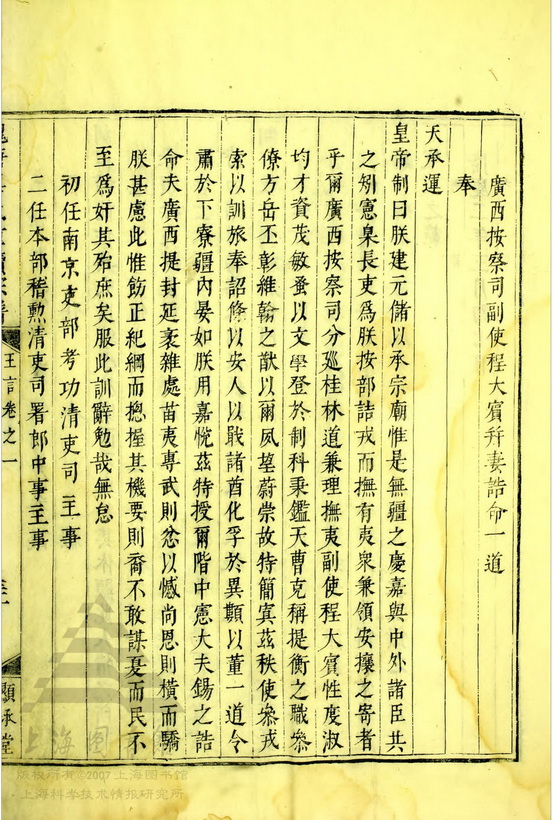 廣西按察司副使程大賓幷妻誥命一道
奉
天承運
皇帝制曰朕建元儲以承宗廟惟是無疆之慶嘉與中外諸臣共
之矧憲臬長吏爲朕按部詰戎而撫有夷衆兼領安攘之寄者
乎爾廣西按察司分廵桂林道兼理撫夷副使程大賓性度淑
均才資茂敏蚤以文學登於制科秉鑑天曹克稱提衡之職叅
僚方岳丕彰維翰之猷以爾夙望蔚崇故特簡寘茲秩使叅戎
索以訓旅奉詔條以安人以戢諸酋化孚於異顓以董一道令
肅於下寮疆內晏如朕用嘉悅茲特授爾階中憲大夫錫之誥
命夫廣西提封延袤雜處苗夷專武則忿以憾尚恩則橫而驕
朕甚慮此惟飭正紀綱而揔握其機要則裔不敢謀憂而民不
至爲奸其殆庶矣服此訓辭勉哉無怠
初任南京吏部考功清吏司主事
二任本部稽勲清吏司署郎中事主事
王言卷之一
顯承堂
上海圖
版权所有©2007上海图书馆
上海科学技术情报研究所